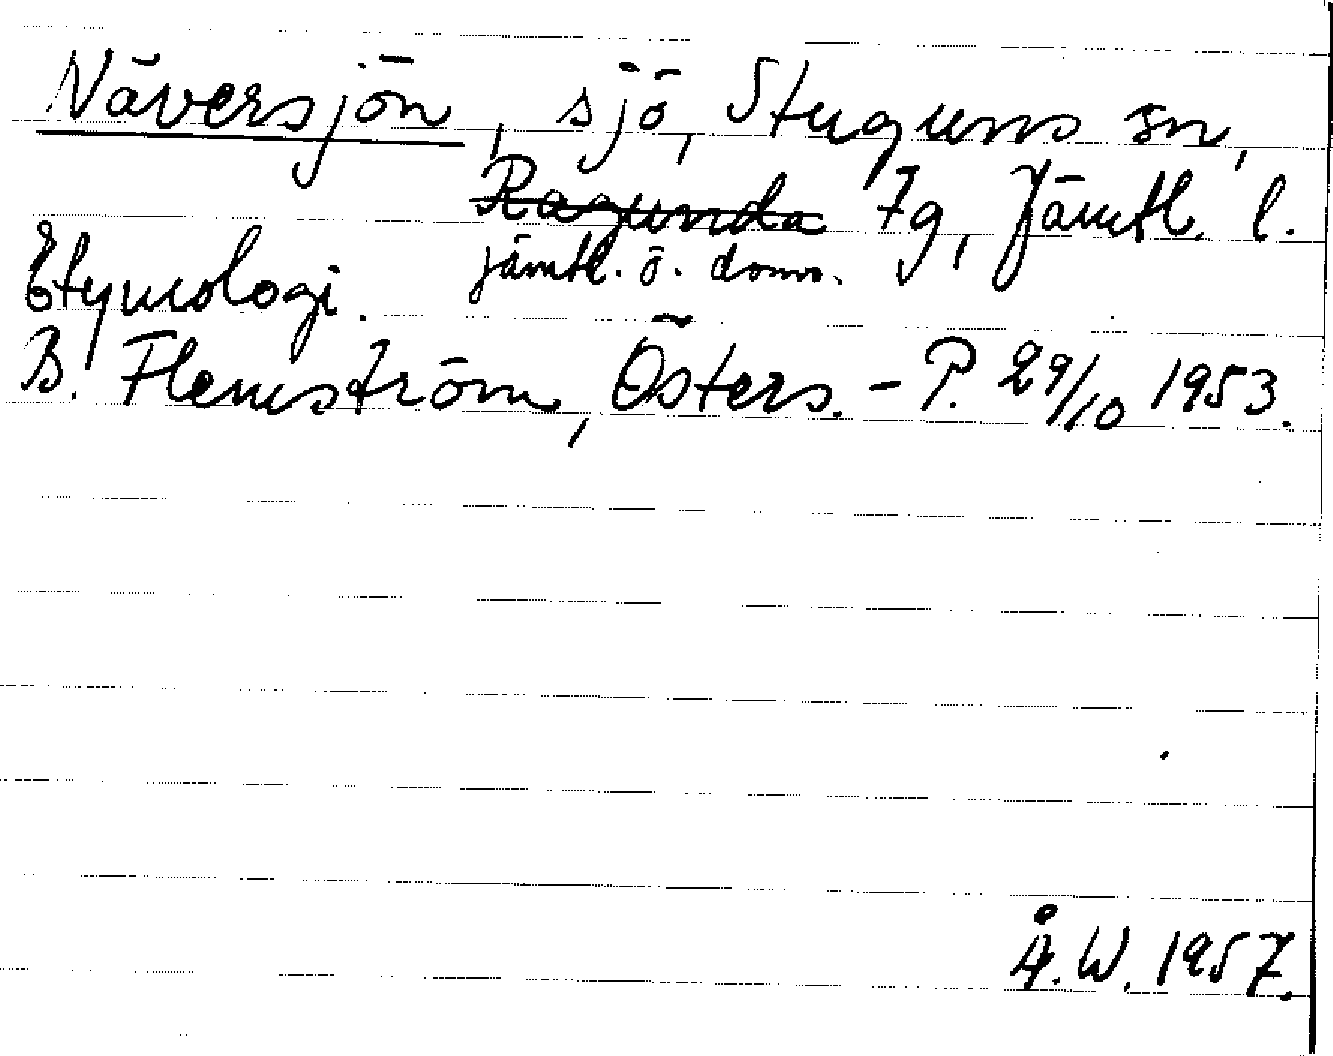 Näversjön, sjö, Stuguns sn,
Ragunda Tg, Jämtl. l.
jämtl. ö. doms.
Etymologi.
B. Flemström, Östers.-P. 29/10 1953.
Å.W. 1957.